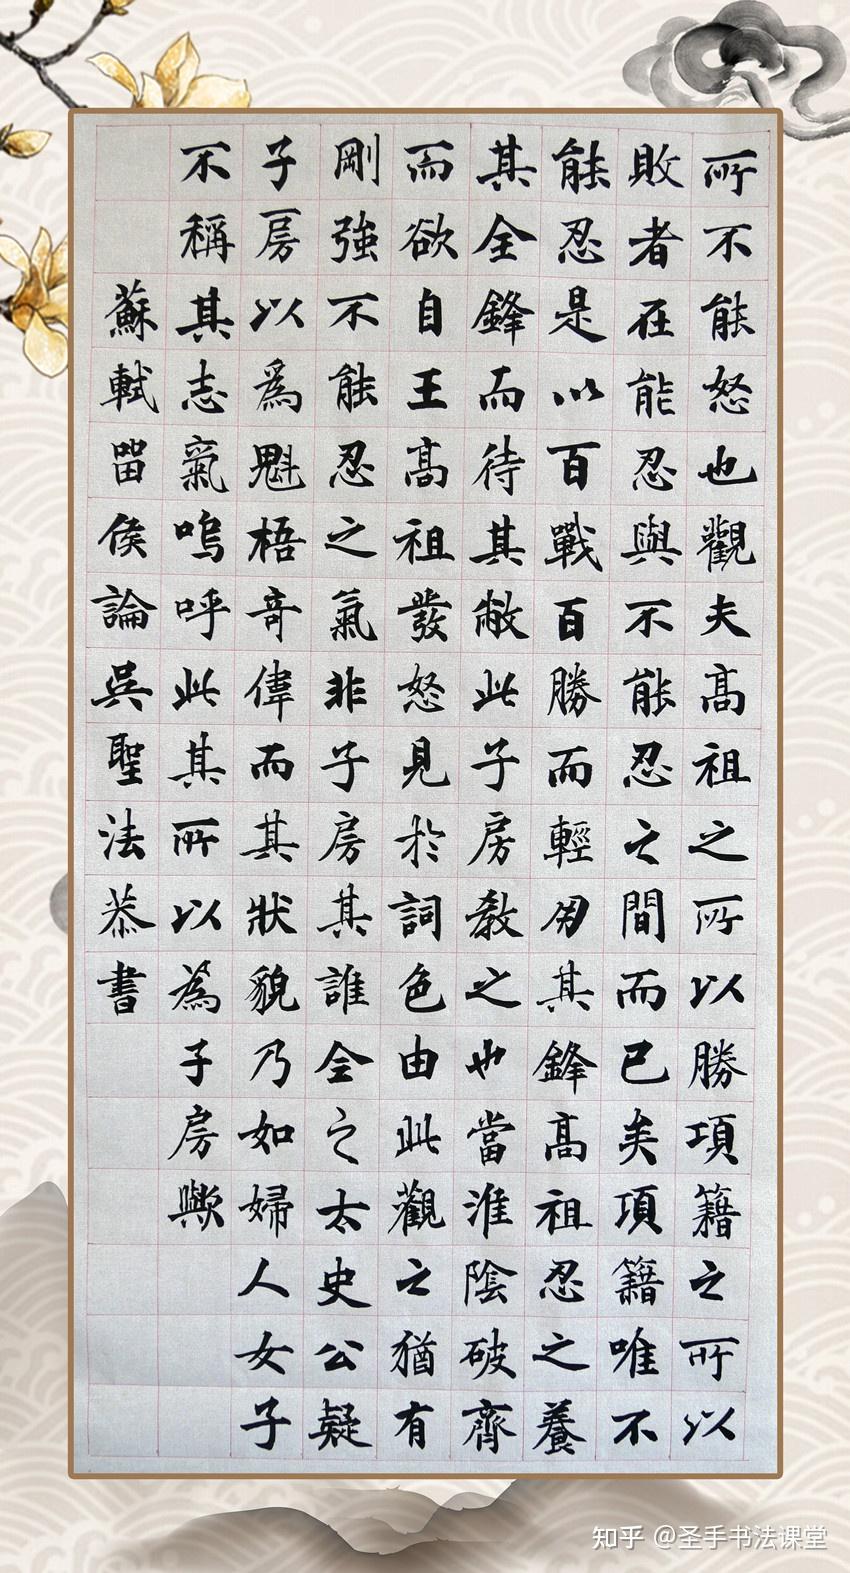 所不能怒也觀夫高祖之所以勝項籍之所以
敗者在能忍與不能忍之間而已矣項籍唯不
能忍是以百戰百勝而輕用其鋒高祖忍之養
其全鋒而待其敝此子房教之也當淮陰破齊
而欲自王高祖發怒見於詞色由此觀之猶有
剛強不能忍之氣非子房其誰全之太史公疑
子房以為魁梧奇偉而其狀貌乃如婦人女子
不稱其志氣嗚呼此其所以為子房歟
蘇軾留侯論吳聖法恭書
知乎 @圣手书法课堂